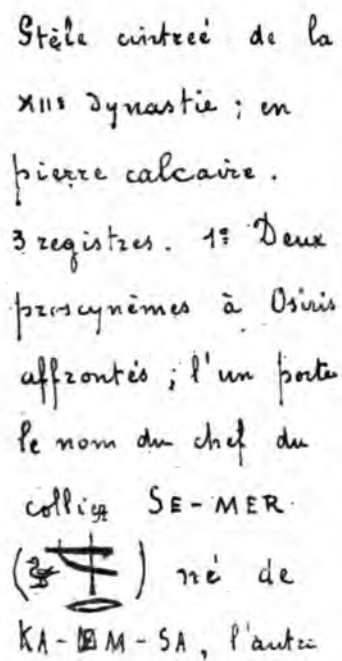 Stèle cintreé de la
XIIe dynastie ; en
pierre calcaire .
3 registres . 1º Deux
proscynèmes à Osiris
affrontés ; l'un porte
le nom du chef du
collier SE-MER
( ) né de
KA- M-SA, l'autre